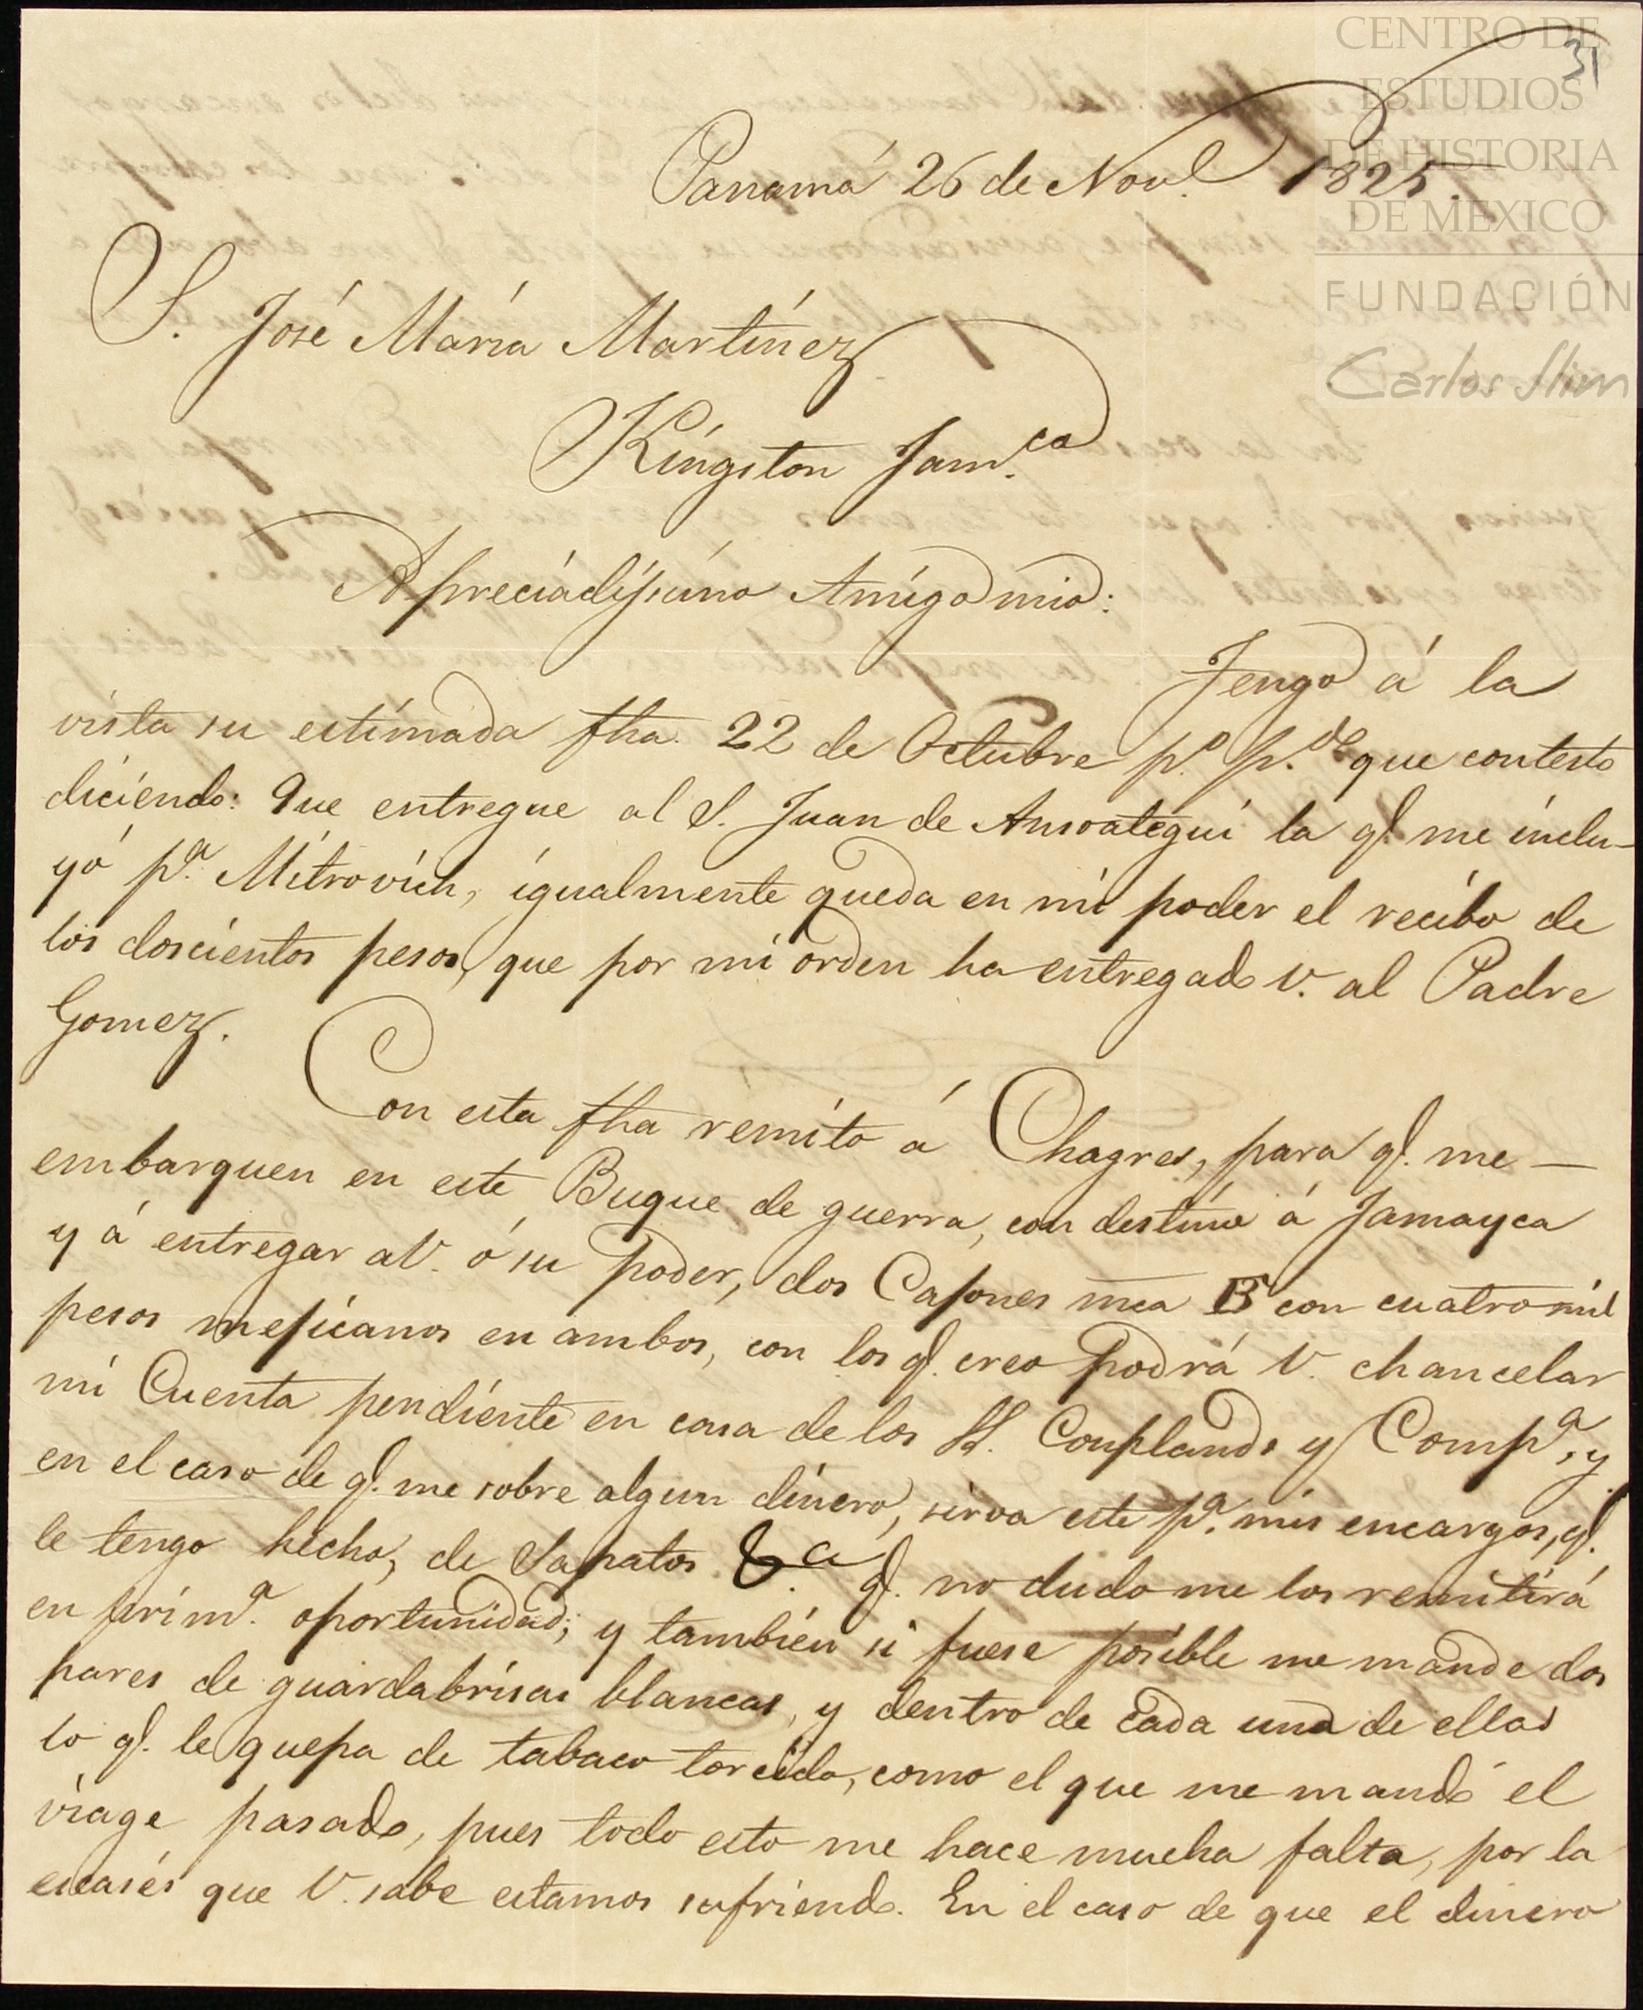 CENTRO DE
ESTUDIOS
DE HISTORIA
DE MEXICO
FUNDACIÓN
Carlos Slim
31
Panamá 26 de Nov.e 1825.
S. José María Martínez
Kíngston Jam.ca
Apreciadísímo Amígo mio:
Tengo á la
vista su estímada fha. 22 de Octubre p.o p.do que contesto
diciendo: Que entregue al S. Juan de Ansoategui la q.e me inclu-
yó p.a Mitrovich, ígualmente queda en mi poder el recibo de
los doscientos pesos, que por mi orden ha entregado V. al Padre
Gomez.
Con esta fha remito á Chagres, para q.e me —
embarquen en este Buque de guerra, con destino á Jamayca
y á entregar a V. ó su poder, dos Cajones mca B con cuatro mil
pesos mejicanos en ambos, con los q.e creo podrá V. chancelar
mi Cuenta pendiente en casa de los SS. Couplands y Comp.a, y
en el caso de q.e me sobre algun dinero, sirva este p.a mis encargos, q.e
le tengo hecho, de Sapatos &.a q.e no dudo me los remitirá
en prim.a oportunidad; y también si fuese posible me mande dos
pares de guardabrisas blancas, y dentro de cada una de ellas
lo q.e le quepa de tabaco torcido, como el que me mandó el
viage pasado, pues todo esto me hace mucha falta, por la
escasés que V. sabe estamos sufriendo. En el caso de que el dinero